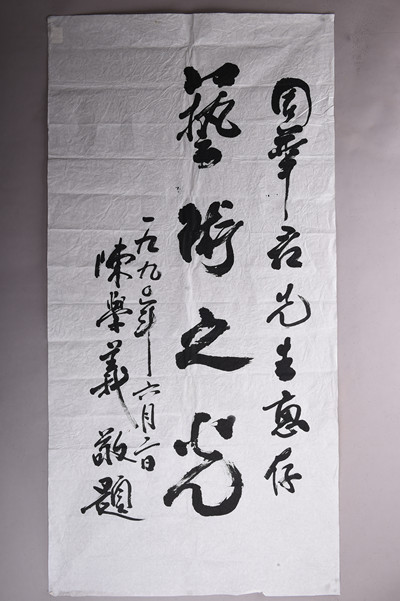 周華君先生惠存
藝術之光
一九九〇年六月六日
陳學義敬題